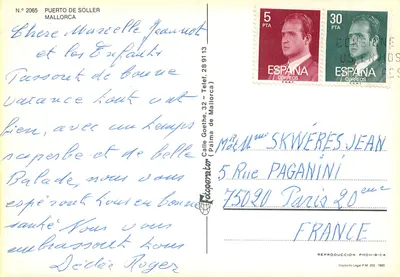 N.º 2065 PUERTO DE SOLLER
MALLORCA
Chere Marcelle Jeannot
et les Enfants
Passons de bonne
vacance tout vat
bien, avec un temps
superbe et de belle
Balade, nous vous
espérons tous en bonne
santé Nous vous
embrassons tous
Dédée Roger
Casparator
Calle Goethe, 32 - Telef. 28 91 13
(Palma de Mallorca)
5
PTA
ESPAÑA
30
PTA
ESPAÑA
M et Mme SKWÉRES JEAN
5 Rue PAGANINI
75020 Paris 20eme
FRANCE
REPRODUCCION PROHIBICA